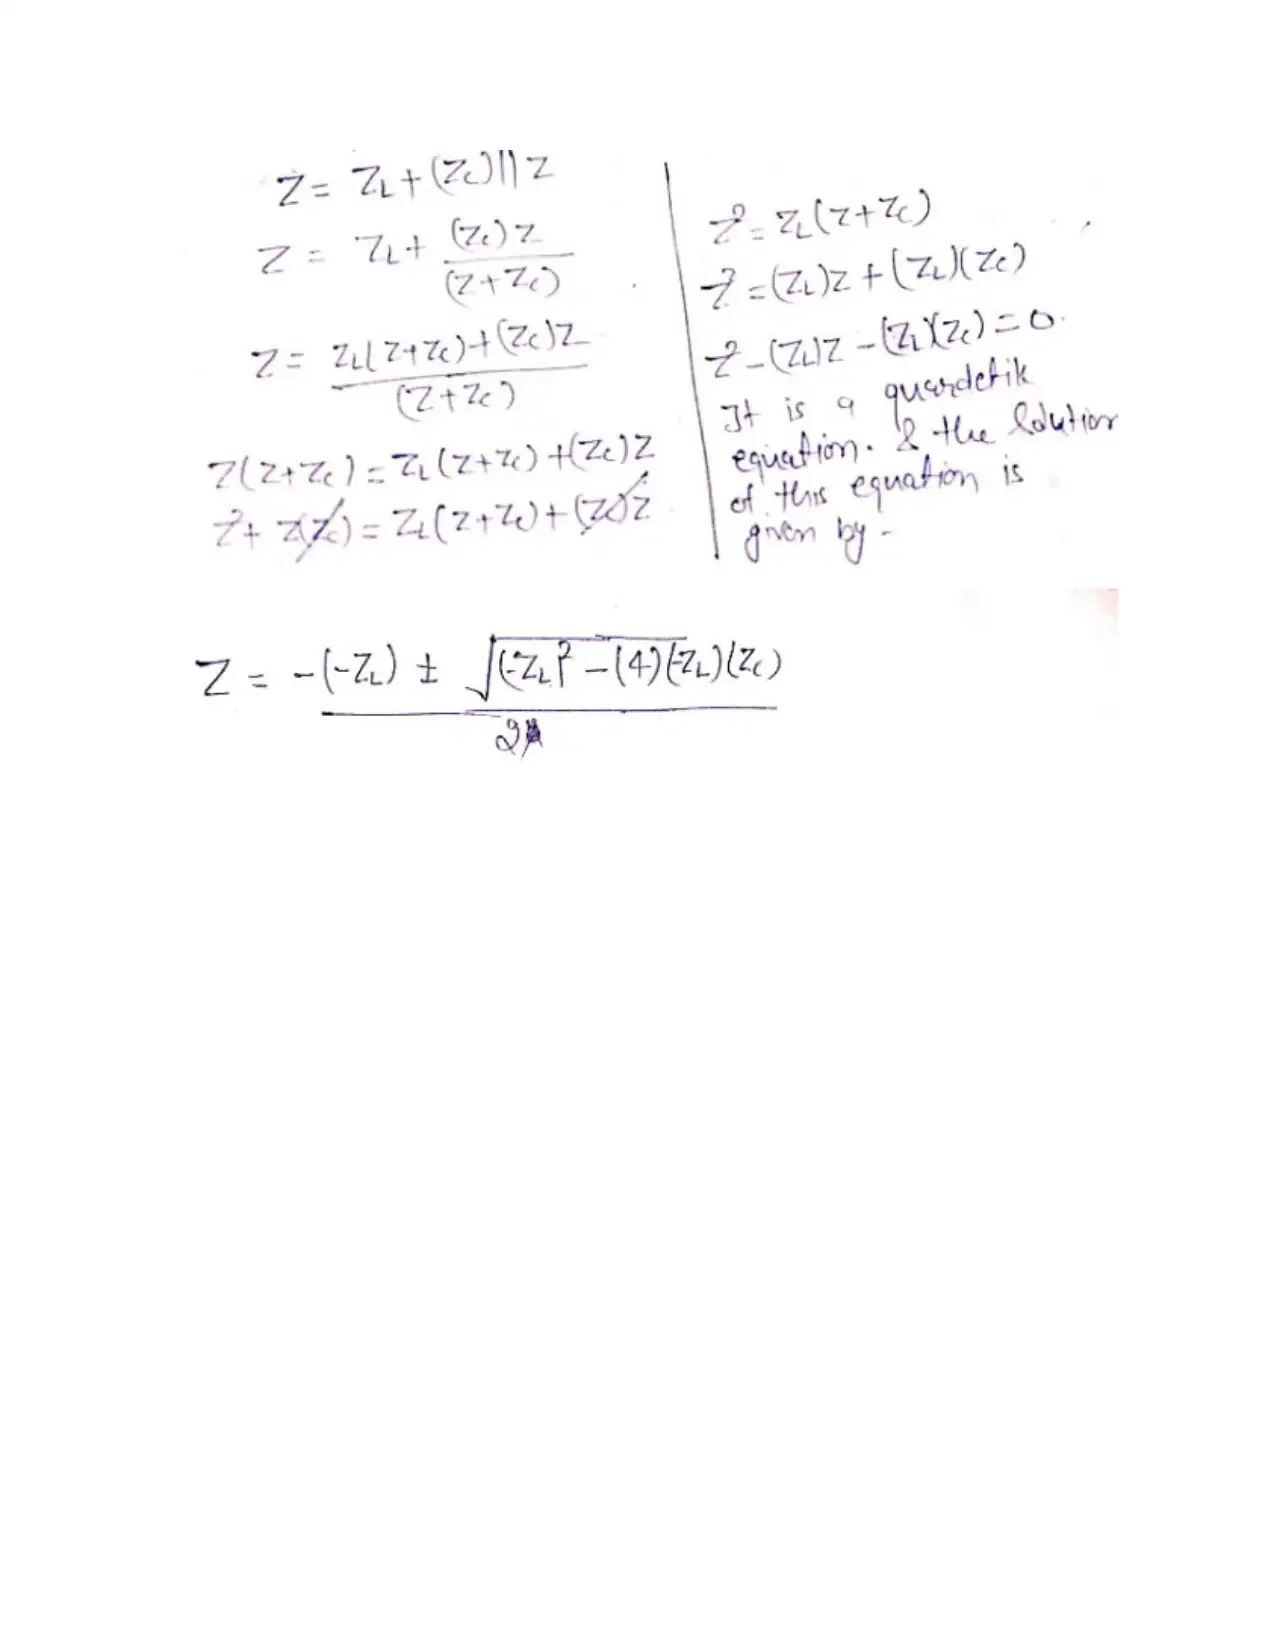 Z = Z_L + (Z_C) || Z
Z = Z_L + (Z_C) Z / (Z + Z_C)
Z = Z_L(Z + Z_C) + (Z_C)Z / (Z + Z_C)
Z(Z + Z_C) = Z_L(Z + Z_C) + (Z_C)Z
Z² + Z(Z_C) = Z_L(Z + Z_C) + (Z_C)Z
Z² = Z_L(Z + Z_C)
Z² = (Z_L)Z + (Z_L)(Z_C)
Z² - (Z_L)Z - (Z_L)(Z_C) = 0.
It is a quardetik
equation. & the Solution
of this equation is
given by -
Z = -(-Z_L) ± √(-Z_L)² - (4)(-Z_L)(Z_C) / 2